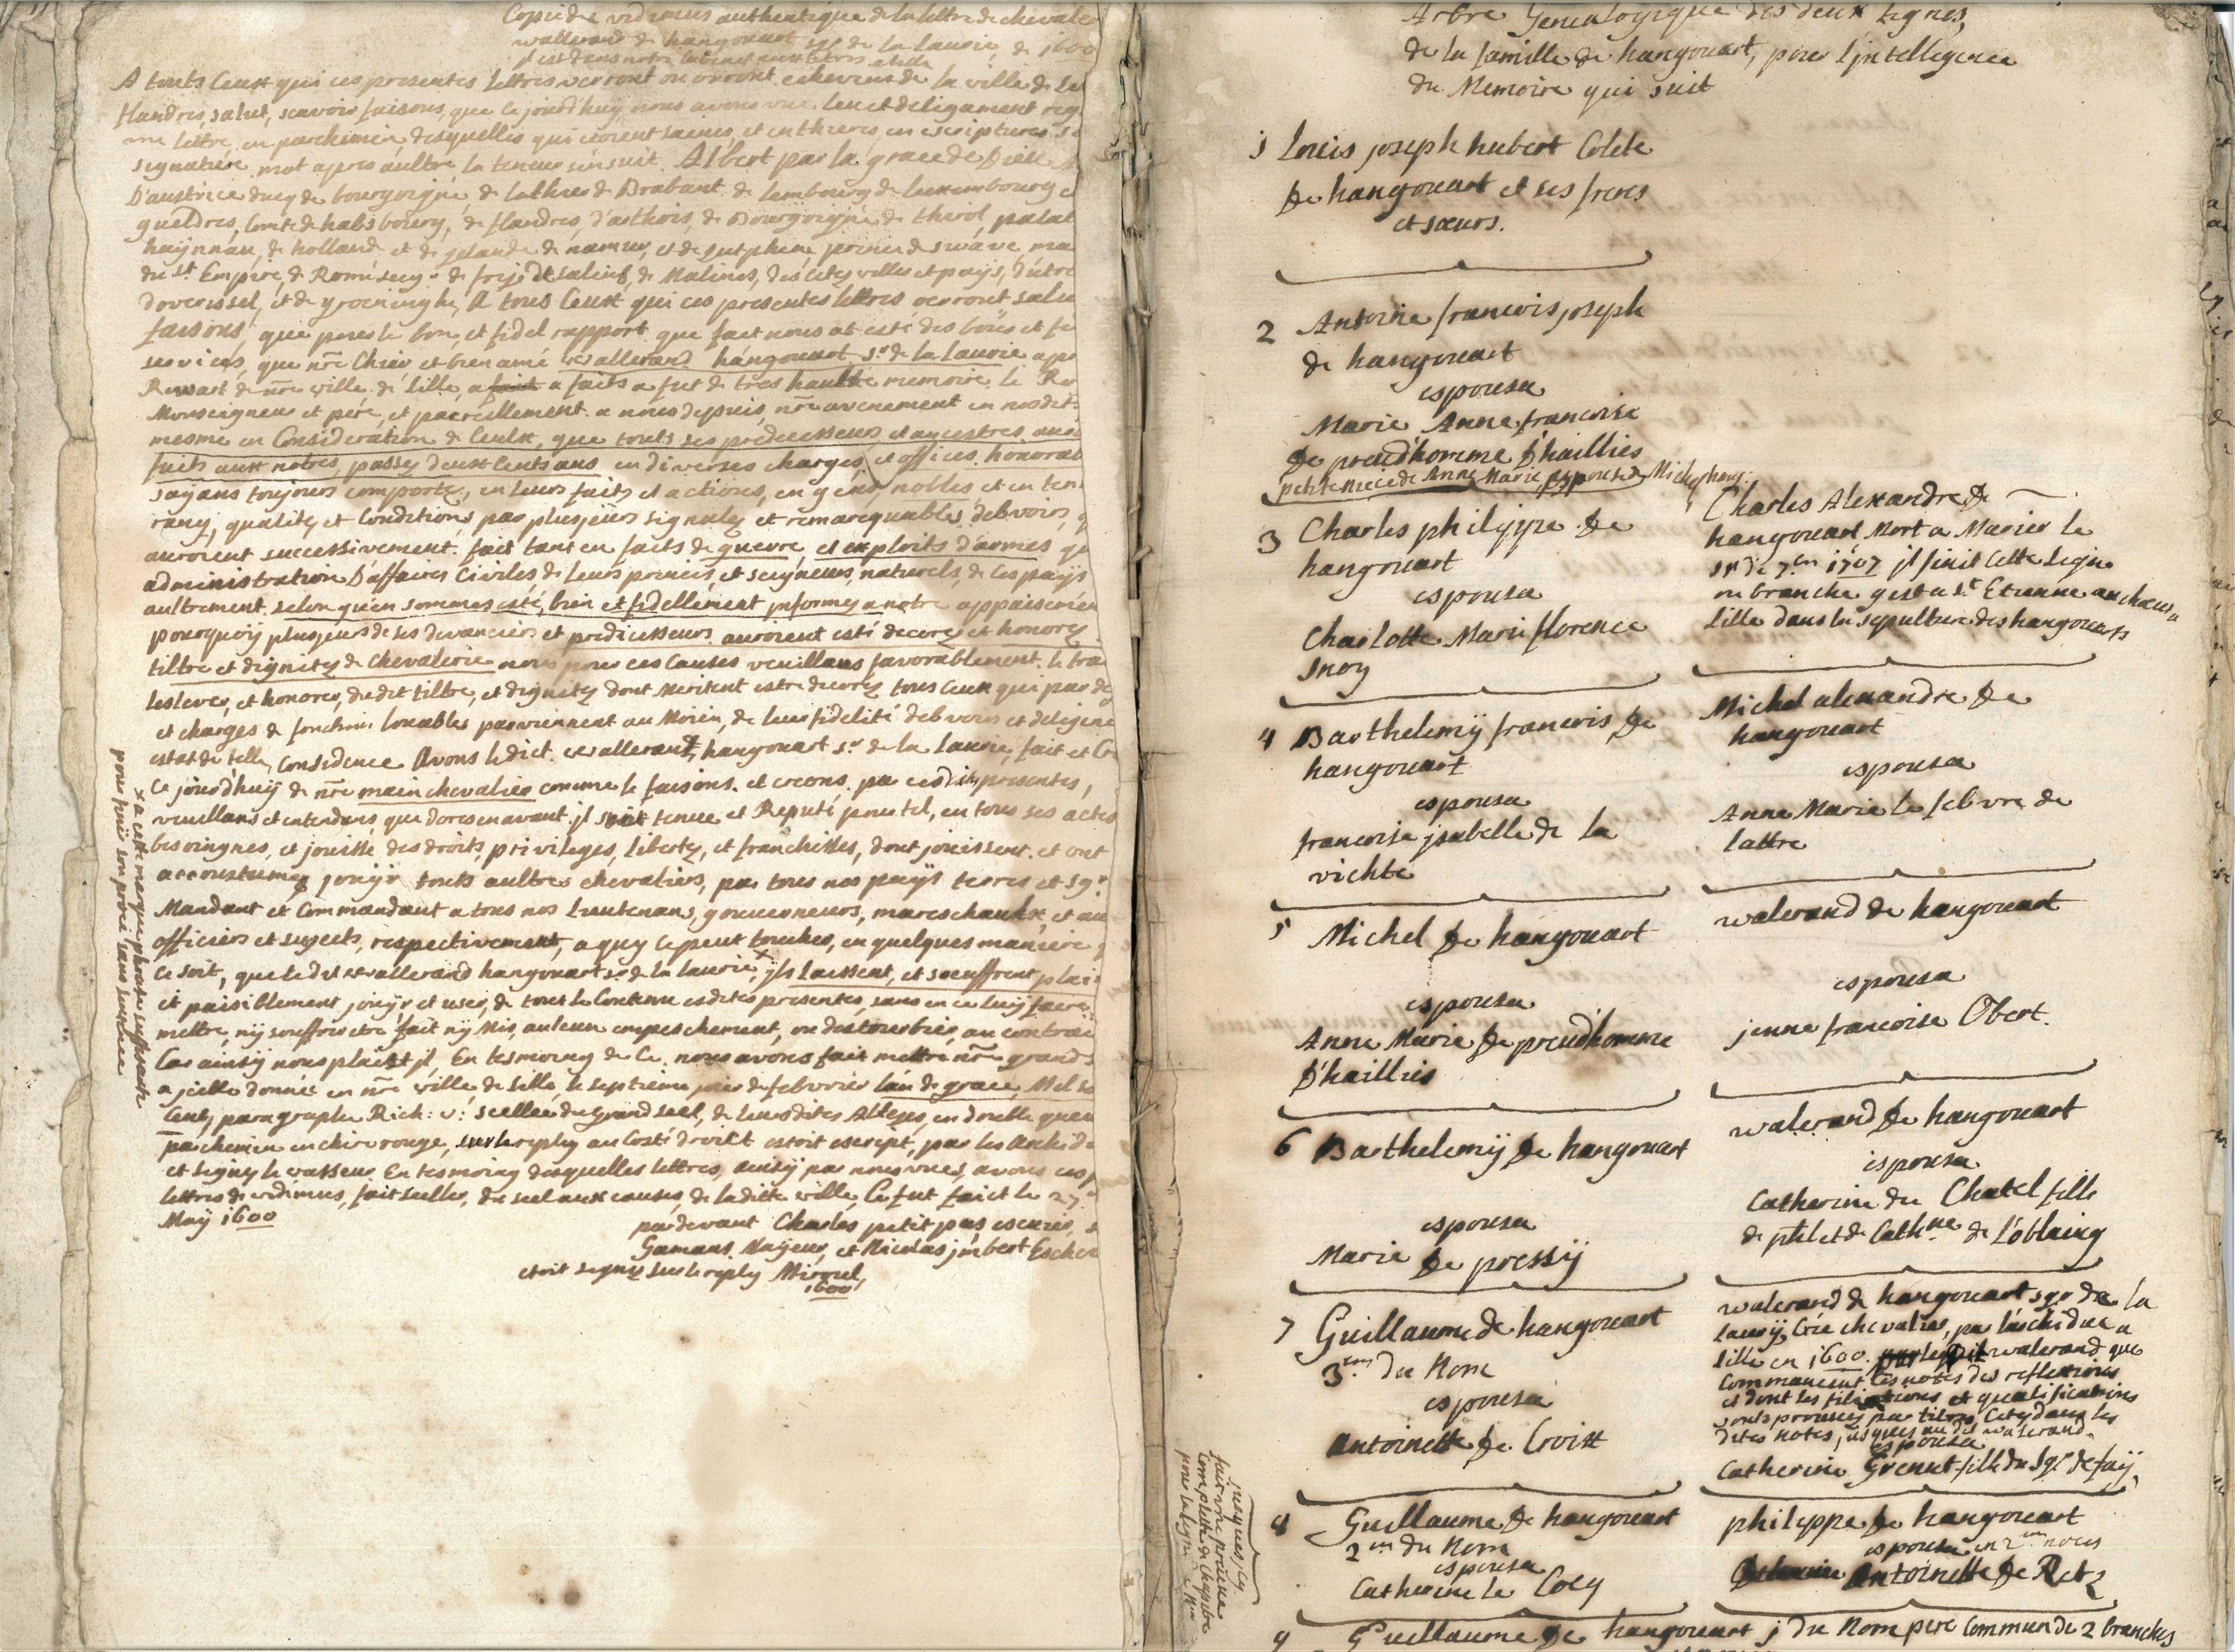 Copie de vidimus authentique de la lettre de chevalier
wallerand de hangouart sgr de la Laurie, de 1600
il est dans notre cabinet aux lettres
A touts Ceux qui ces presentes Lettres verront ou orront echevins de la ville de
flandres, salut, scavoir faisons, que ce jourd'huy nous avons vu, leu et deligament
une lettre, en parchemin desquelles qui etoient saines, et enthieres, en escriptures
signature mot apres aultre la teneur s'ensuit. Albert par la grace de Dieu
D'austrice ducq de bourgoigne, de Lothier de Brabant de Lembourg de Luxembourg
gueldres, Comte de habsbourg, de flandres, d'arthois, de Bourgoigne de thirol, palat
haynnau, de hollande et de zelande de namur, et de zutphen, prince de swave, ma
du St Empire, de Rome, de frise de salins, de Malines, des citez villes et pays, d'utre
doverissel, et de groeninghe, A tous Ceux qui ces presentes lettres verront salu
faisons, que pour le bon, et fidel rapport que fait nous at esté des bons et
services, que nre Chier et bien amé wallerand hangouart sr de la Laurie
Rewart de nre ville de Lille, a fait a faits a fut de tres haulte memoire, le
Monseigneur et pere, et pareillement a nous depuis nre avenement en nosdit
mesme en Consideration de Ceulx, que touts ses predecesseurs et ancestres
faits aux notres, passez deux Cents ans en diverses charges, et offices honorab
sayans toujours comportez, en leurs faits et actions, en gens nobles et en
rang, qualitez et Conditions, par plusieurs signalez et remarequables debvoirs,
auroient successivement fait tant en faits de guerre, et exploits d'armes
administration D'affaires civiles, de leurs princes, et seigneurs, naturels, de ces pays
aultrement selon qu'en sommes esté, bien et fidellement informez a notre appaisemen
pourquoy plusieurs de ses devanciers et predicesseurs auroient esté decorez et honorez
tiltre et dignitez de chevalerie nous pour ces Causes veuillans favorablement le
leslever, et honorer, du dit tiltre, et dignitez dont meritent estre decorez tous Ceux qui par
et charges de fonctions louables parviennent au de leur fidelité debvoirs et
estat de telle Considence Avons ledict wallerand, hangouart sr de la Laurie, fait et
Ce jourd'huy de nre main chevalier comme le faisons et creons par cesdites presentes,
veuillans et entendans que doresenavant il soit tenu et Reputé pour tel, en tous ses actes
besoingnes, et jouisse des droits, privileges, liberty, et franchisses, dont jouissent et ont
accoustumez jouyr touts aultres chevaliers, par tous nos pays terres et sgr
Mandant et Commandant a tous nos Lieutenans, gouverneurs, mareschaulx, et
officiers et sujects, respectivement, a quy ce peut toucher, en quelques maniere
Ce soit, que ledit wallerand hangouart sr de la laurie x ils laissent, et soeuffrent
et paisiblement jouyr et user, de tout le Contenu esdites presentes, sans en ce luy faire
mettre, ny souffrir etre fait ny mis, aulcun empeschement, ou destourbier, au contraire
Car ainsy nous plaist il, En tesmoing de Ce nous avons fait mettre nre grand
a jcelle donnée en nre ville de Lille, le septieme jour de febvrier l'an de grace, Mil
Cent, paragraphe Rich: v: scellée du grand seel, de leursdites Altezes, en double
parchemin en chire rouge, sur le reply au Costé droict estoit escript, par les archid
et signez le vasseur En tesmoing desquelles lettres, ainsy par nous vues, avons
lettres de vidimus, fait seeller, du seel aux causes, de ladite ville Ce fut faict le 27
May 1600
pardevant Charles petitpas escuier,
Gamans Mayeur, et Nicolas jmbert Eschev
etoit signez sur le reply Miroul
1600
x a cette marque phrase
pour jouir
Arbre Genealogique des deux Lignes,
de la famille de hangouart, pour l'jntelligence
du Memoire qui suit
1 Louis joseph hubert Colete
de hangouart et ses freres
et sœurs.
2 Antoine francois joseph
de hangouart
espousa
Marie Anne francoise
de preud'homme D'hailles
petite niece de Anne Marie espouse de Michel
3 Charles philippe de
hangouart
espousa
Charlotte Marie florence
Snoy
Charles Alexandre de
hangouart Mort a Marier le
de 7bre 1707 jl finit Cette Ligne
ou branche gest a St Etienne au chœur a
Lille dans la sepulture des hangouarts
4 Barthelemij francois de
hangouart
espousa
francoise jsabelle de la
vichte
Michel alexandre de
hangouart
espousa
Anne Marie le febvre de
lattre
5 Michel de hangouart
espousa
Anne Marie de preud'homme
D'hailles
walerand de hangouart
espousa
jenne francoise Obert.
6 Barthelemij de hangouart
espousa
Marie de pressij
walerand de hangouart
espousa
Catherine du Chatel fille
de phl et de Cathne de L'oblaing
7 Guillaume de hangouart
3em du Nom
espousa
Antoinette de Croix
walerand de hangouart sgr de la
Laurij, Crée chevalier, par l'archiduc a
Lille en 1600 walerand que
Commancent les notes des reflexions
et dont les filiations et qualifications
sont prouvez par titres Citez dans les
dites notes, jusques au dit walerand
espousa
Catherine Grenut fille du sgr de fay,
jusques jcy
fait une preuve
complette de
pour la ligne
8 Guillaume de hangouart
2em du Nom
espousa
Catherine le Cocq
philippe de hangouart
espousa en 2em noces
Antoinette de Retz
9 Guillaume de hangouart j du Nom pere Commun de 2 branches